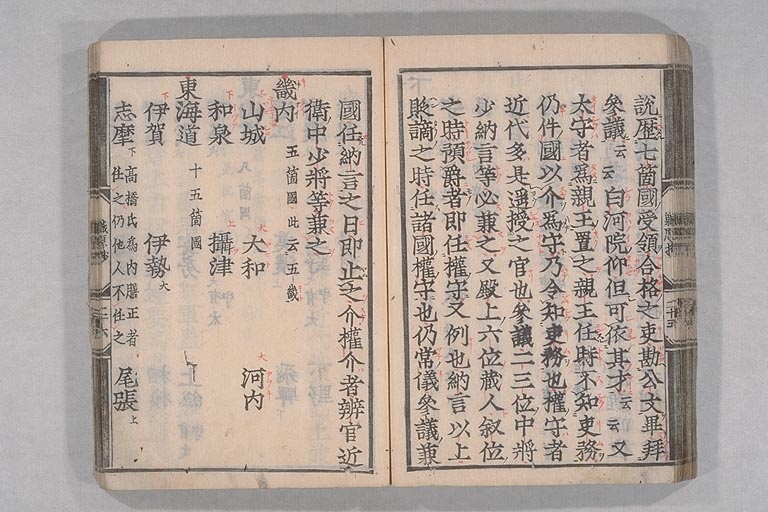 説歴七箇國受領合格之吏勘公文畢拜
參議云云白河院仰但可依其才云云又
太守者爲親王置之親王任時不知吏務
仍件國以介爲守乃令知吏務也權守者
近代多是遥授之官也參議二三位中將
少納言等必兼之又殿上六位藏人叙位
之時預爵者即任權守又例也納言以上
貶謫之時任諸國權守也仍常儀參議兼
國任納言之日即止之介權介者辨官近
衛中少將等兼之
畿内 五箇國此云五畿
山城上 大和大 河内大
和泉下 攝津上
東海道 十五箇國
伊賀下 伊勢大
志摩下 高橋氏爲内膳正者任之仍他人不任之 尾張上
職原抄 二十五
職原抄 二十六